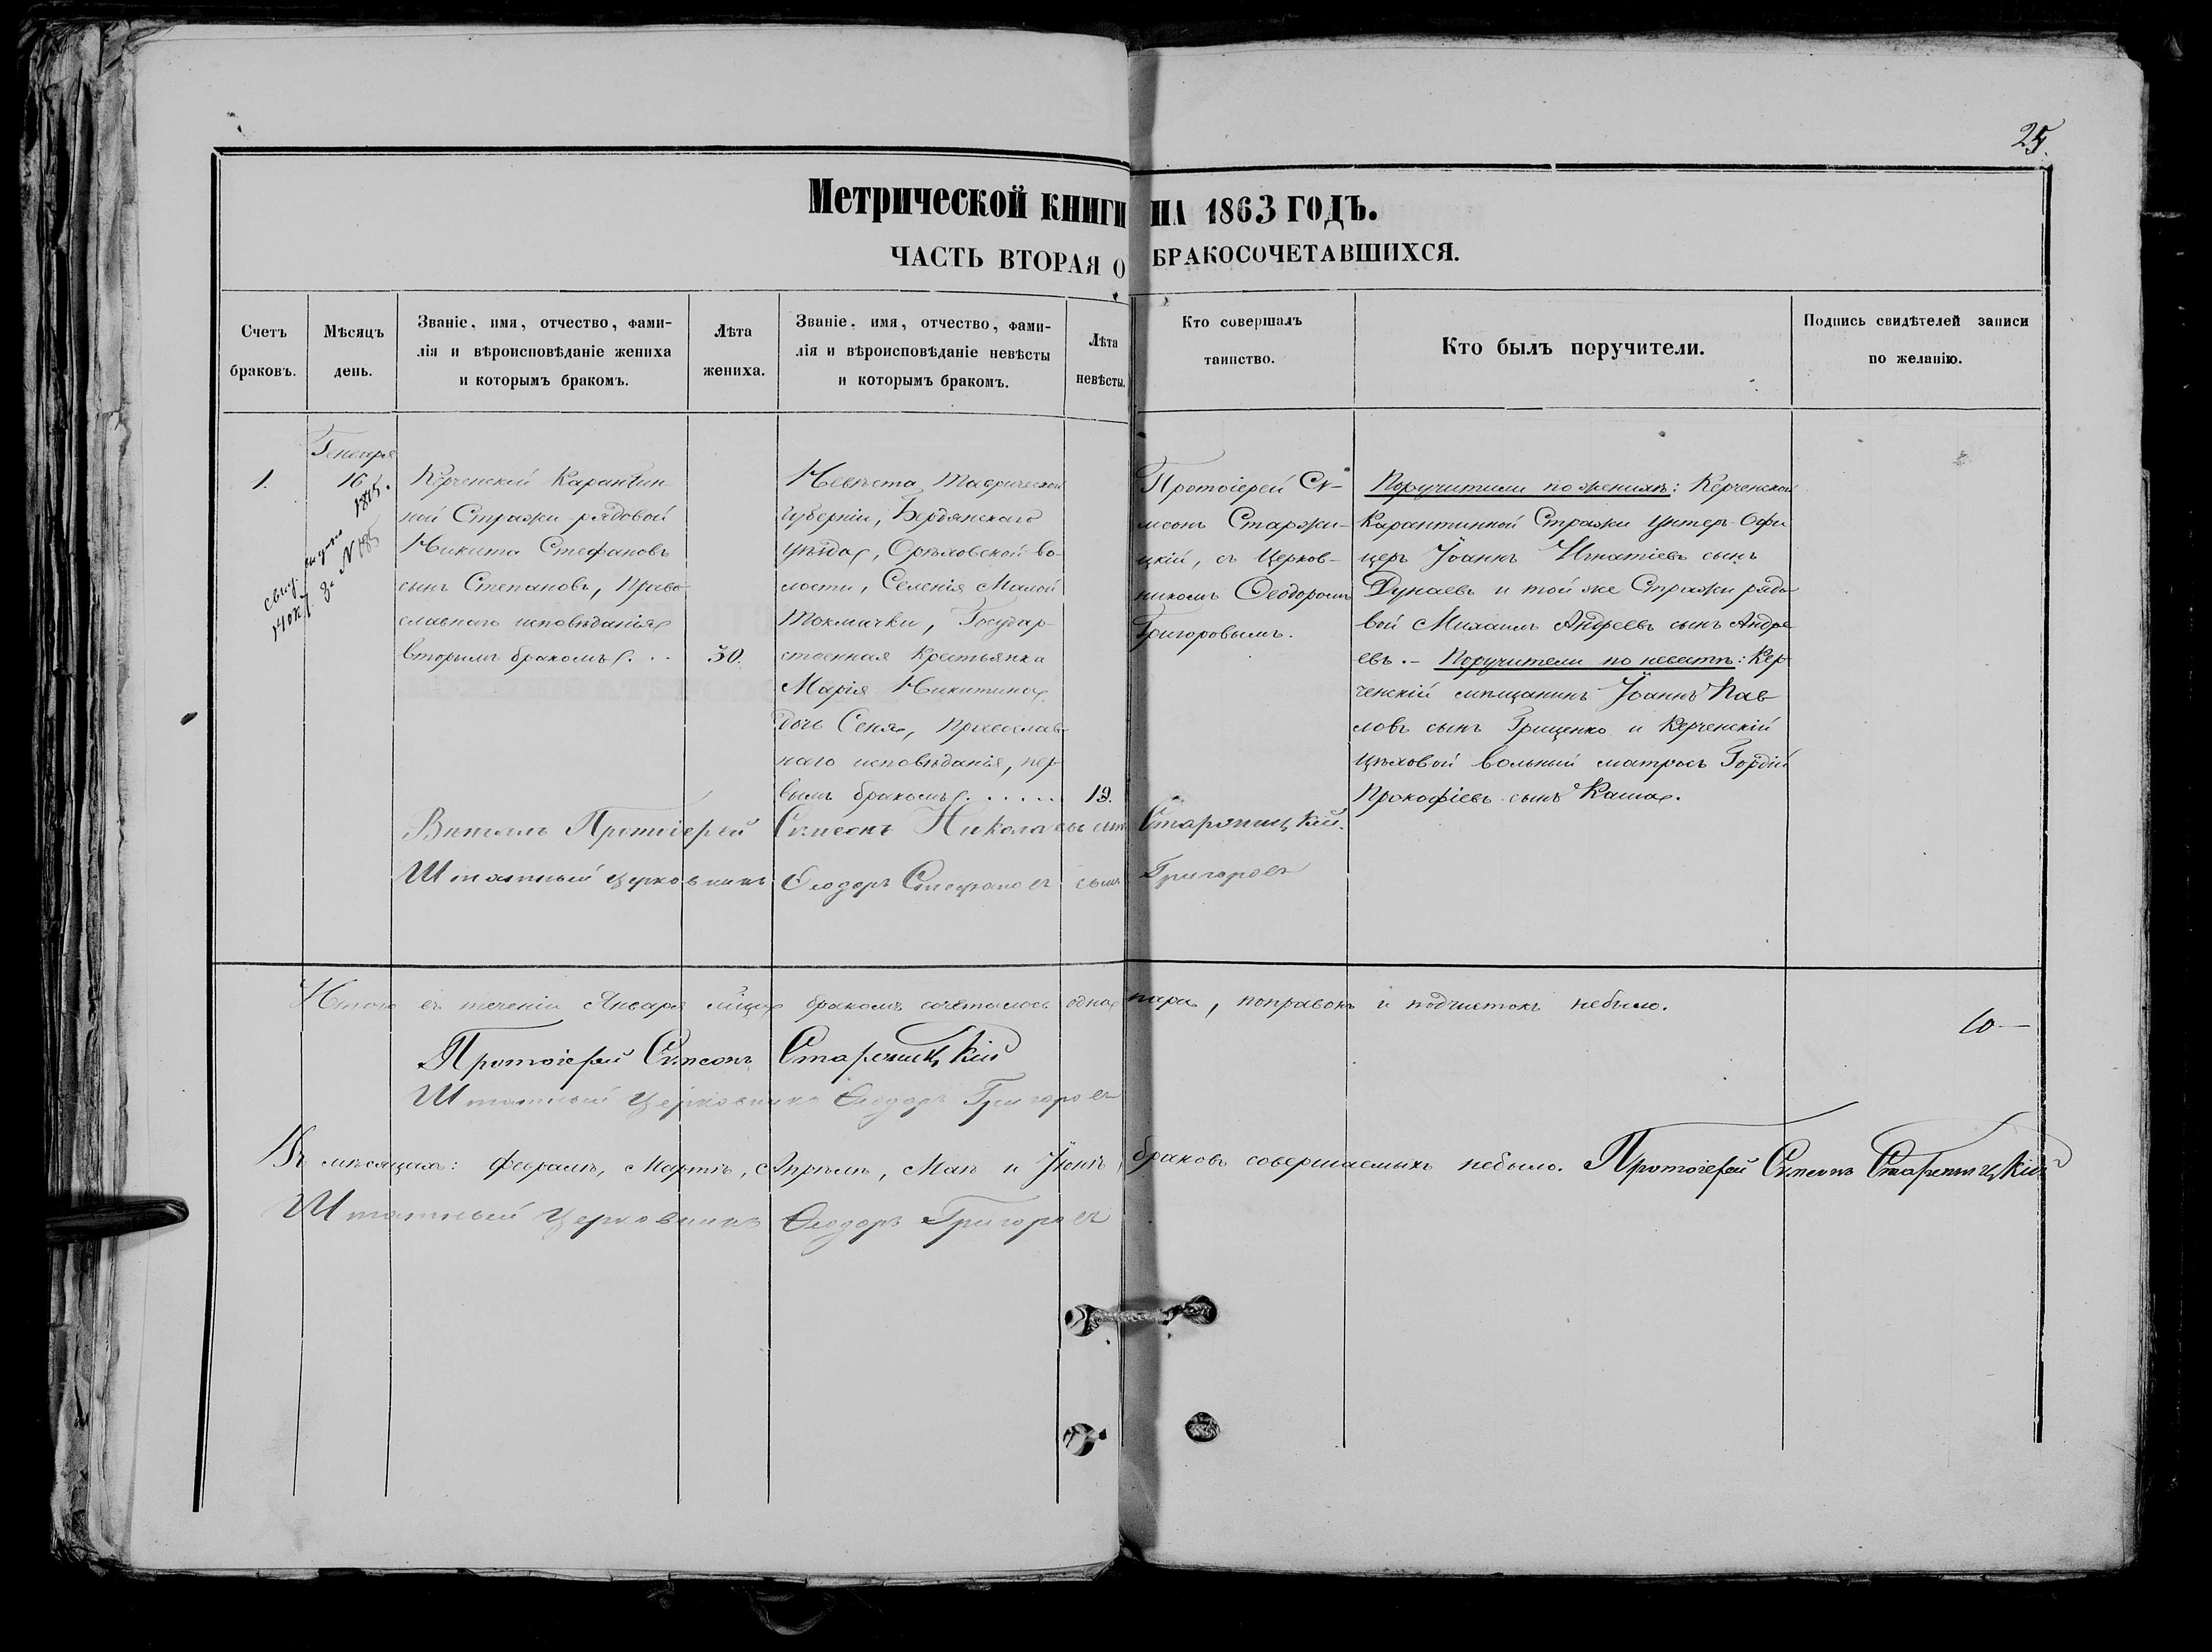 25.
Метрической книги на 1863 годъ.
ЧАСТЬ ВТОРАЯ О БРАКОСОЧЕТАВШИХСЯ.
Счетъ браковъ.
Мѣсяцъ день.
Званіе, имя, отчество, фами-
лія и вѣроисповѣданіе жениха
и которымъ бракомъ.
Лѣта жениха.
Званіе, имя, отчество, фами-
лія и вѣроисповѣданіе невѣсты
и которымъ бракомъ.
Лѣта невѣсты.
Кто совершалъ
таинство.
Кто былъ поручители.
Подпись свидѣтелей записи
по желанію.
1.
Генваря
16
Керченской Карантин
ной Стражи рядовой
Никита Стефановъ
сынъ Степановъ, Право
славнаго исповѣданія
вторымъ бракомъ. . .
30.
Невѣста Таврической
губерніи, Бердянскаго
уѣзда, Орѣховской во
лости, Селенія Малой
Токмачки, Государ
ственная Крестьянка
Марія Никитина
дочь Сеня, Православ
наго исповѣданія, пер
вымъ бракомъ. . . . . .
19.
Протоіерей Сѵ-
меонъ Старжи-
цкій, съ Церков-
никомъ Ѳеодоромъ
Григоровымъ.
Поручители по женихѣ: Керченской
Карантинной Стражи Унтеръ-Офи
церъ Іоаннъ Игнатіевъ сынъ
Дунаевъ и той же Стражи рядо
вой Михаилъ Андреевъ сынъ Андре
евъ. – Поручители по невѣстѣ: Кер
ченскій мѣщанинъ Іоаннъ Пав
ловъ сынъ Гриценко и Керченскій
Цѣховой вольный матросъ Гордій
Прокофіевъ сынъ Каша.
Протоіерей Сѵмеонъ Николаевъ сынъ Старжицкій.
Штатный церковникъ Ѳеодоръ Стефановъ сынъ Григоровъ
Итого въ теченіи Января мѣсяца бракомъ сочеталось одна пара, поправокъ и подчистокъ небыло.
Протоіерей Сѵмеонъ Старжицкій
Штатный Церковникъ Ѳеодоръ Григоровъ
Въ мѣсяцахъ: Февралѣ, Мартѣ, Апрѣлѣ, Маѣ и Іюнѣ, браковъ совершаемыхъ небыло. Протоіерей Сѵмеонъ Старжицкій
Штатный Церковникъ Ѳеодоръ Григоровъ